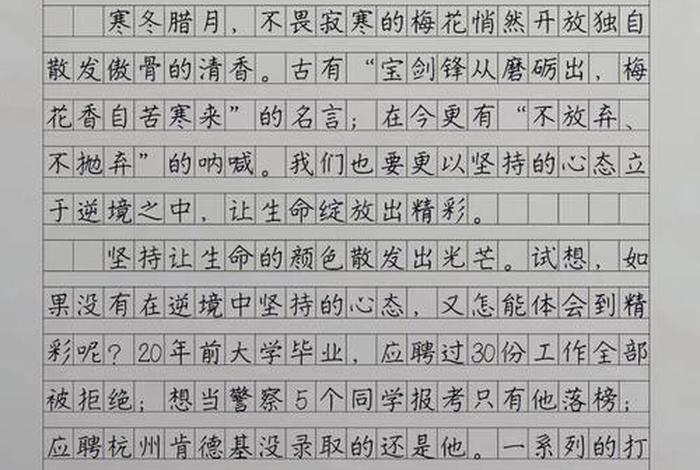 寒冬腊月，不畏寂寒的梅花悄然开放独自
散发傲骨的清香。古有“宝剑锋从磨砺出，梅
花香自苦寒来”的名言；在今更有“不放弃、
不抛弃”的呐喊。我们也要更以坚持的心态立
于逆境之中，让生命绽放出精彩。
坚持让生命的颜色散发出光芒。试想，如
果没有在逆境中坚持的心态，又怎能体会到精
彩呢？20年前大学毕业，应聘过30份工作全部
被拒绝；想当警察5个同学报考只有他落榜；
应聘杭州肯德基没录取的还是他。一系列的打